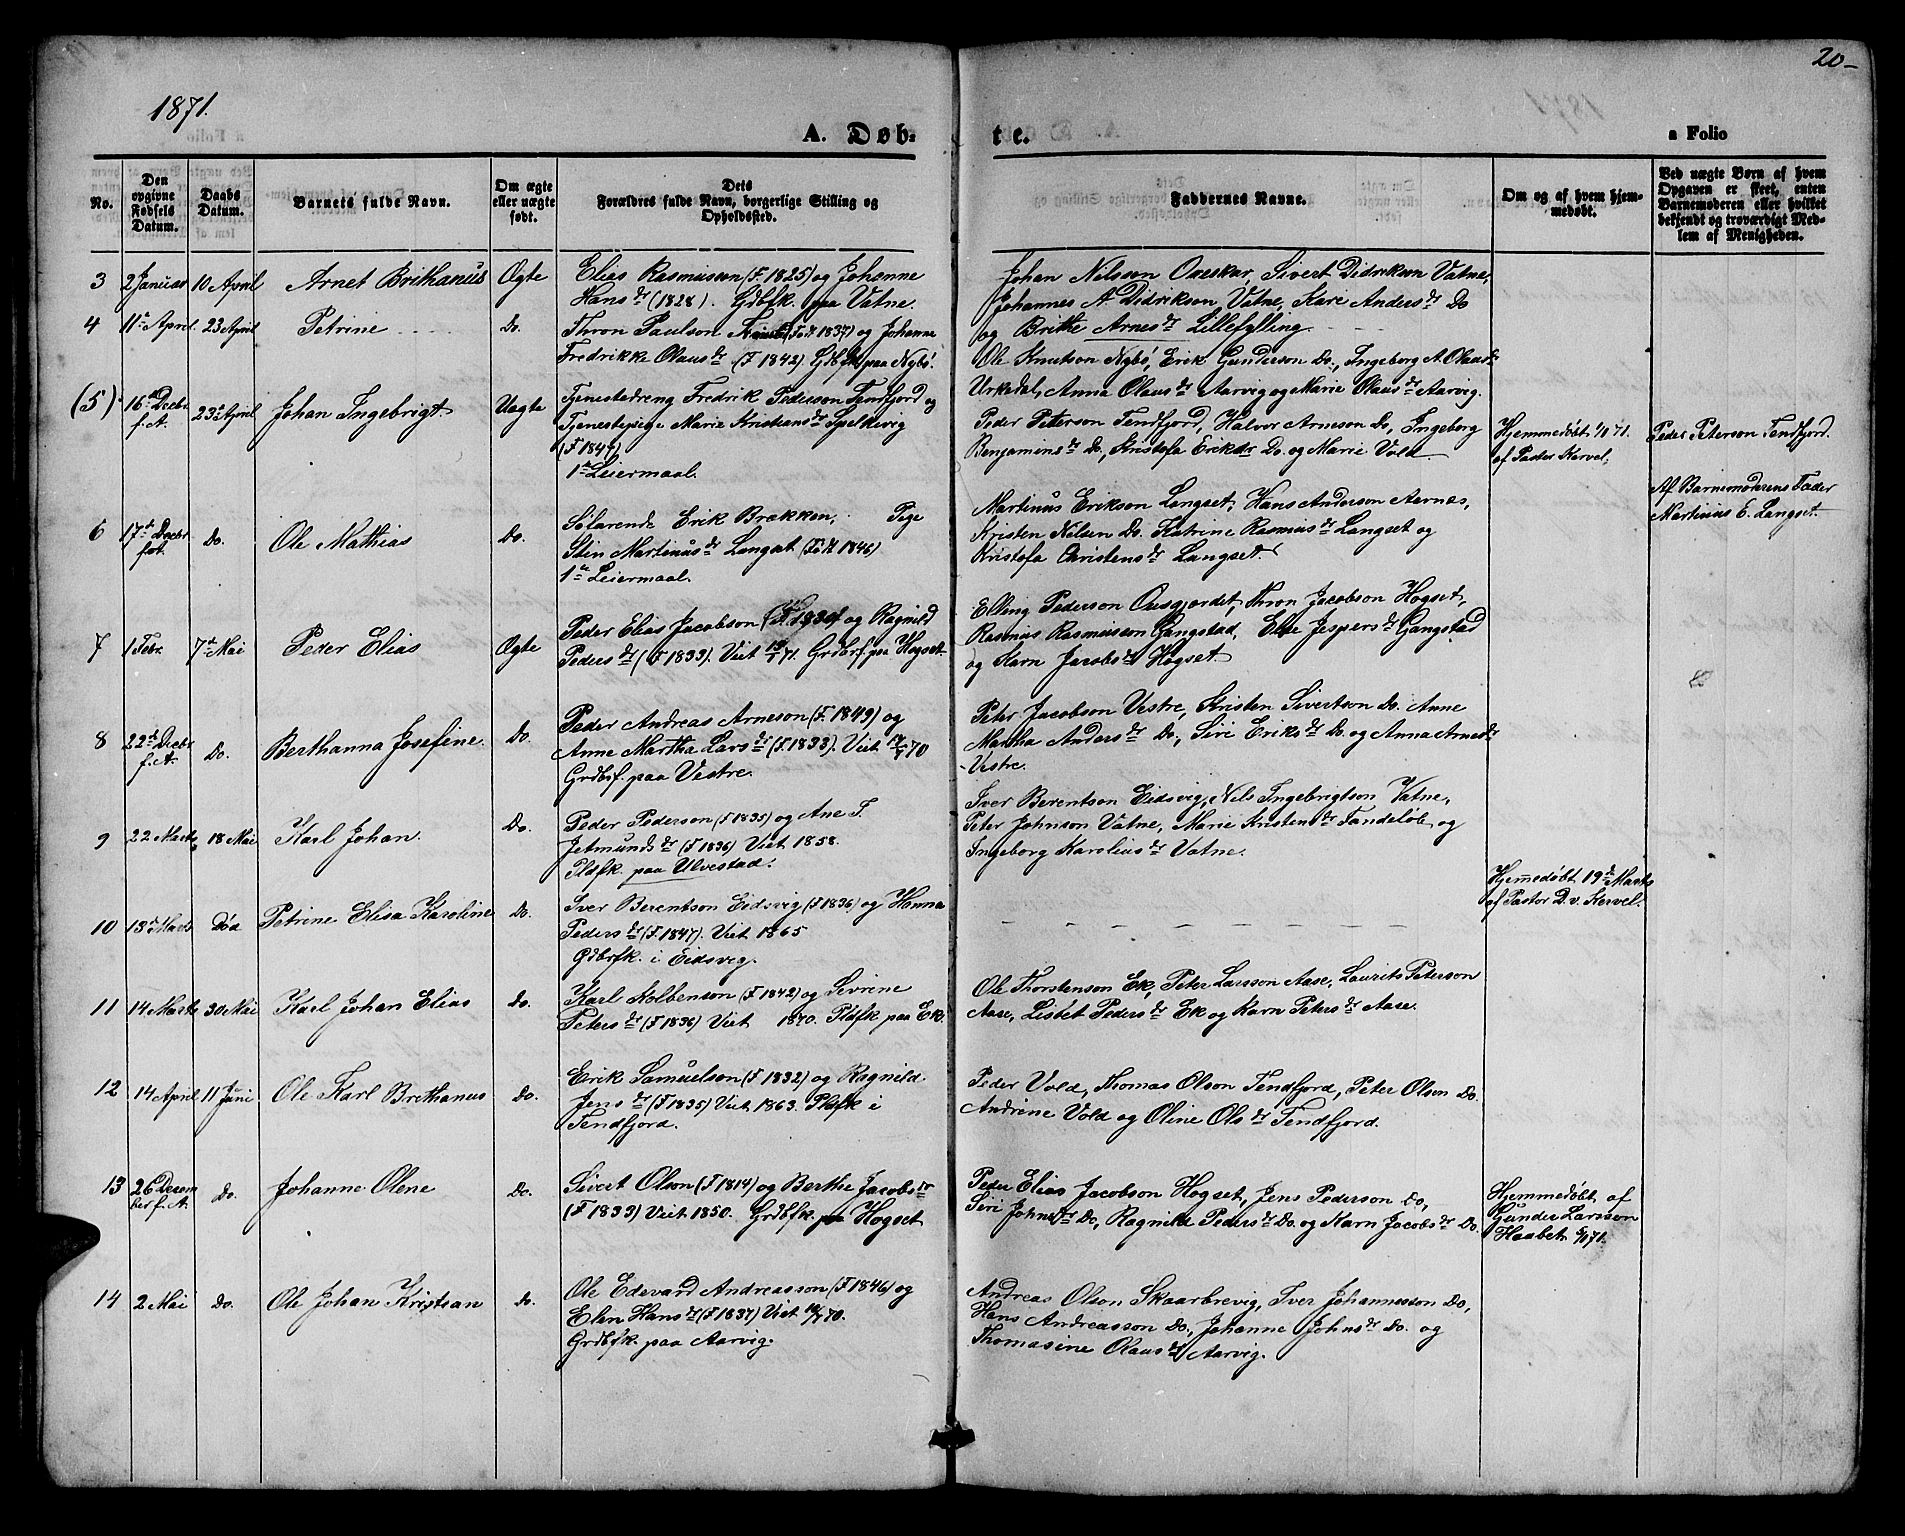 1871.
20-
A. Døb-
te.
a Folio
No.
Den opgivne Fødsels Datum.
Daabs Datum.
Barnets fulde Navn.
Om ægte eller uægte født.
Dets
Forældres fulde Navn, borgerlige Stilling og
Opholdssted.
Faddernes Navne.
Om og af hvem hjem-
medøbt.
Ved uægte Børn af hvem
Opgaven er skeet, enten
Barnemoderen eller hvilket
bekjendt og troværdigt Med-
lem af Menigheden.
3 2 Januar 10 April Arnet Brithanus Ogte
Elias Rasmusson (F. 1825) og Johanne
Hans dr (1828). Gdbfk. paa Vatne.
Johan Nilsson Oxeskar, Sivert Didrikson Vatne,
Johannes A Didrikson Vatne, Kari Anders dr Do
og Brithe Arnes dr Lillefylling
4 11te April 23 April Petrine Do.
Thron Paulson (Født 1837) og Johanne
Fredrikke Olaus dr (F 1842) Gdbfk paa Nybö.
Ole Knutson Nybö, Erik Gunderson Do., Ingeborg A. Olaus dr
Urkedal, Anna Olaus dr Aarvig og Marie Olaus dr Aarvig.
(5) 16de Decbr f. A. 23de April Johan Ingebrigt Uægte
Tjenestedreng Fredrik Pederson Tendfjord og
Tjenestepige Marie Kristians dr Spelkevig
(F 1847)
1ste Leiermaal.
Peder Peterson Tendfjord, Halvor Arneson Do, Ingeborg
Benjamins dr Do, Kristofa Eriks dr Do. og Marie Vold
Hjemmedøbt 1/1 71.
af Pastor Kervel.
Peder Peterson Tendfjord.
6 17de Decbr fort. Do. Ole Mathias Do.
Sølarende Erik Brækken, Pige
Stin Martinus dr Langset (Født 1846)
1ste Leiermaal.
Martinus Erikson Langset, Hans Anderson Aarnæs,
Kristen Nilsen Do. Katrine Rasmus dr Langset og
Kristofa Christens dr Langset
Af Barnemoderens Fader
Martinius E. Langset.
7 1 Febr. 7de Mai Peder Elias Ogte
Peder Elias Jacobson og Ragnild
Peders dr (F 1833). Viet 71. Grdbrf. paa Hogset.
Elling Pederson Oxsgjordet, Thron Jacobson Hogset,
Rasmus Rasmusson Gangstad, Else Jespers dr Gangstad
og Karn Jacobs dr Hogset.
8 22de Decbr f. A. Do. Berthanna Josefine. Do.
Peder Andreas Arneson (F. 1849) og
Anne Martha Lars dr (F 1838). Viet 70
Grdbrf. paa Vestre.
Peter Jacobson Vestre, Kristen Sivertson Do. Anne
Martha Anders dr Do., Siri Eriks dr Do. og Anna Arnes dr
Vestre.
9 22 Marts 18 Mai Karl Johan. Do.
Peder Pederson (F 1835) og Ane T.
Jetmunds dr (F 1836) Viet 1858.
Pldfk. paa Ulvestad.
Iver Berentson Eidsvig, Nils Ingebrigtson Vatne,
Peter Johnson Vatne, Marie Kristens dr Tandeløb og
Ingeborg Karolius dr Vatne.
10 13de Marts Død Petrine Elisa Karoline Do.
Iver Berentson Eidsvig (F 1836) og Hanna
Peders dr (F. 1847). Viet 1865
Gdbrfk. i Eidsvig.
Hjemmedøbt 19de Marts
af Pastor D. v. Kervel.
11 14 Marts 30 Mai Karl Johan Elias Do.
Karl Kolbenson (F 1842) og Sivrine
Peters dr (F 1836) Viet 1870. Pldfk paa Ek.
Ole Thorstenson Ek, Peter Larsson Aase, Laurits Peterson
Aase, Lisbet Peders dr Ek og Karn Peters dr Aase.
12 14 April 11 Juni Ole Karl Brethanus Do.
Erik Samuelson (F 1832) og Ragnild
Jens dr (F 1835) Viet 1863. Pldfk i
Tendfjord.
Peder Vold, Thomas Olson Tendfjord, Peter Olson Do.
Andrine Vold og Oline Ols dr Tendfjord.
13 26 Decem ber f. A. Do. Johanne Olene Do.
Sivert Olson (F 1814) og Berthe Jacobs dr
(F 1833) Viet 1850. Grdbfk. paa Hogset
Peder Elias Jacobson Hogset, Jens Pederson Do,
Siri Johns dr Do, Ragnilde Peders dr Do. og Karn Jacobs dr Do
Hjemmedøbt af
Gunder Larsson
Haabet 71.
14 2 Mai Do. Ole Johan Kristian Do.
Ole Edevard Andreasson (F 1846) og
Elen Hans dr (F 1837) Viet 70.
Grdbfk. paa Aarvig.
Andreas Olson Skaarbrevig, Iver Johannesson Do,
Hans Andreasson Do., Johanne Johns dr Do. og
Thomasine Olaus dr Aarvig.